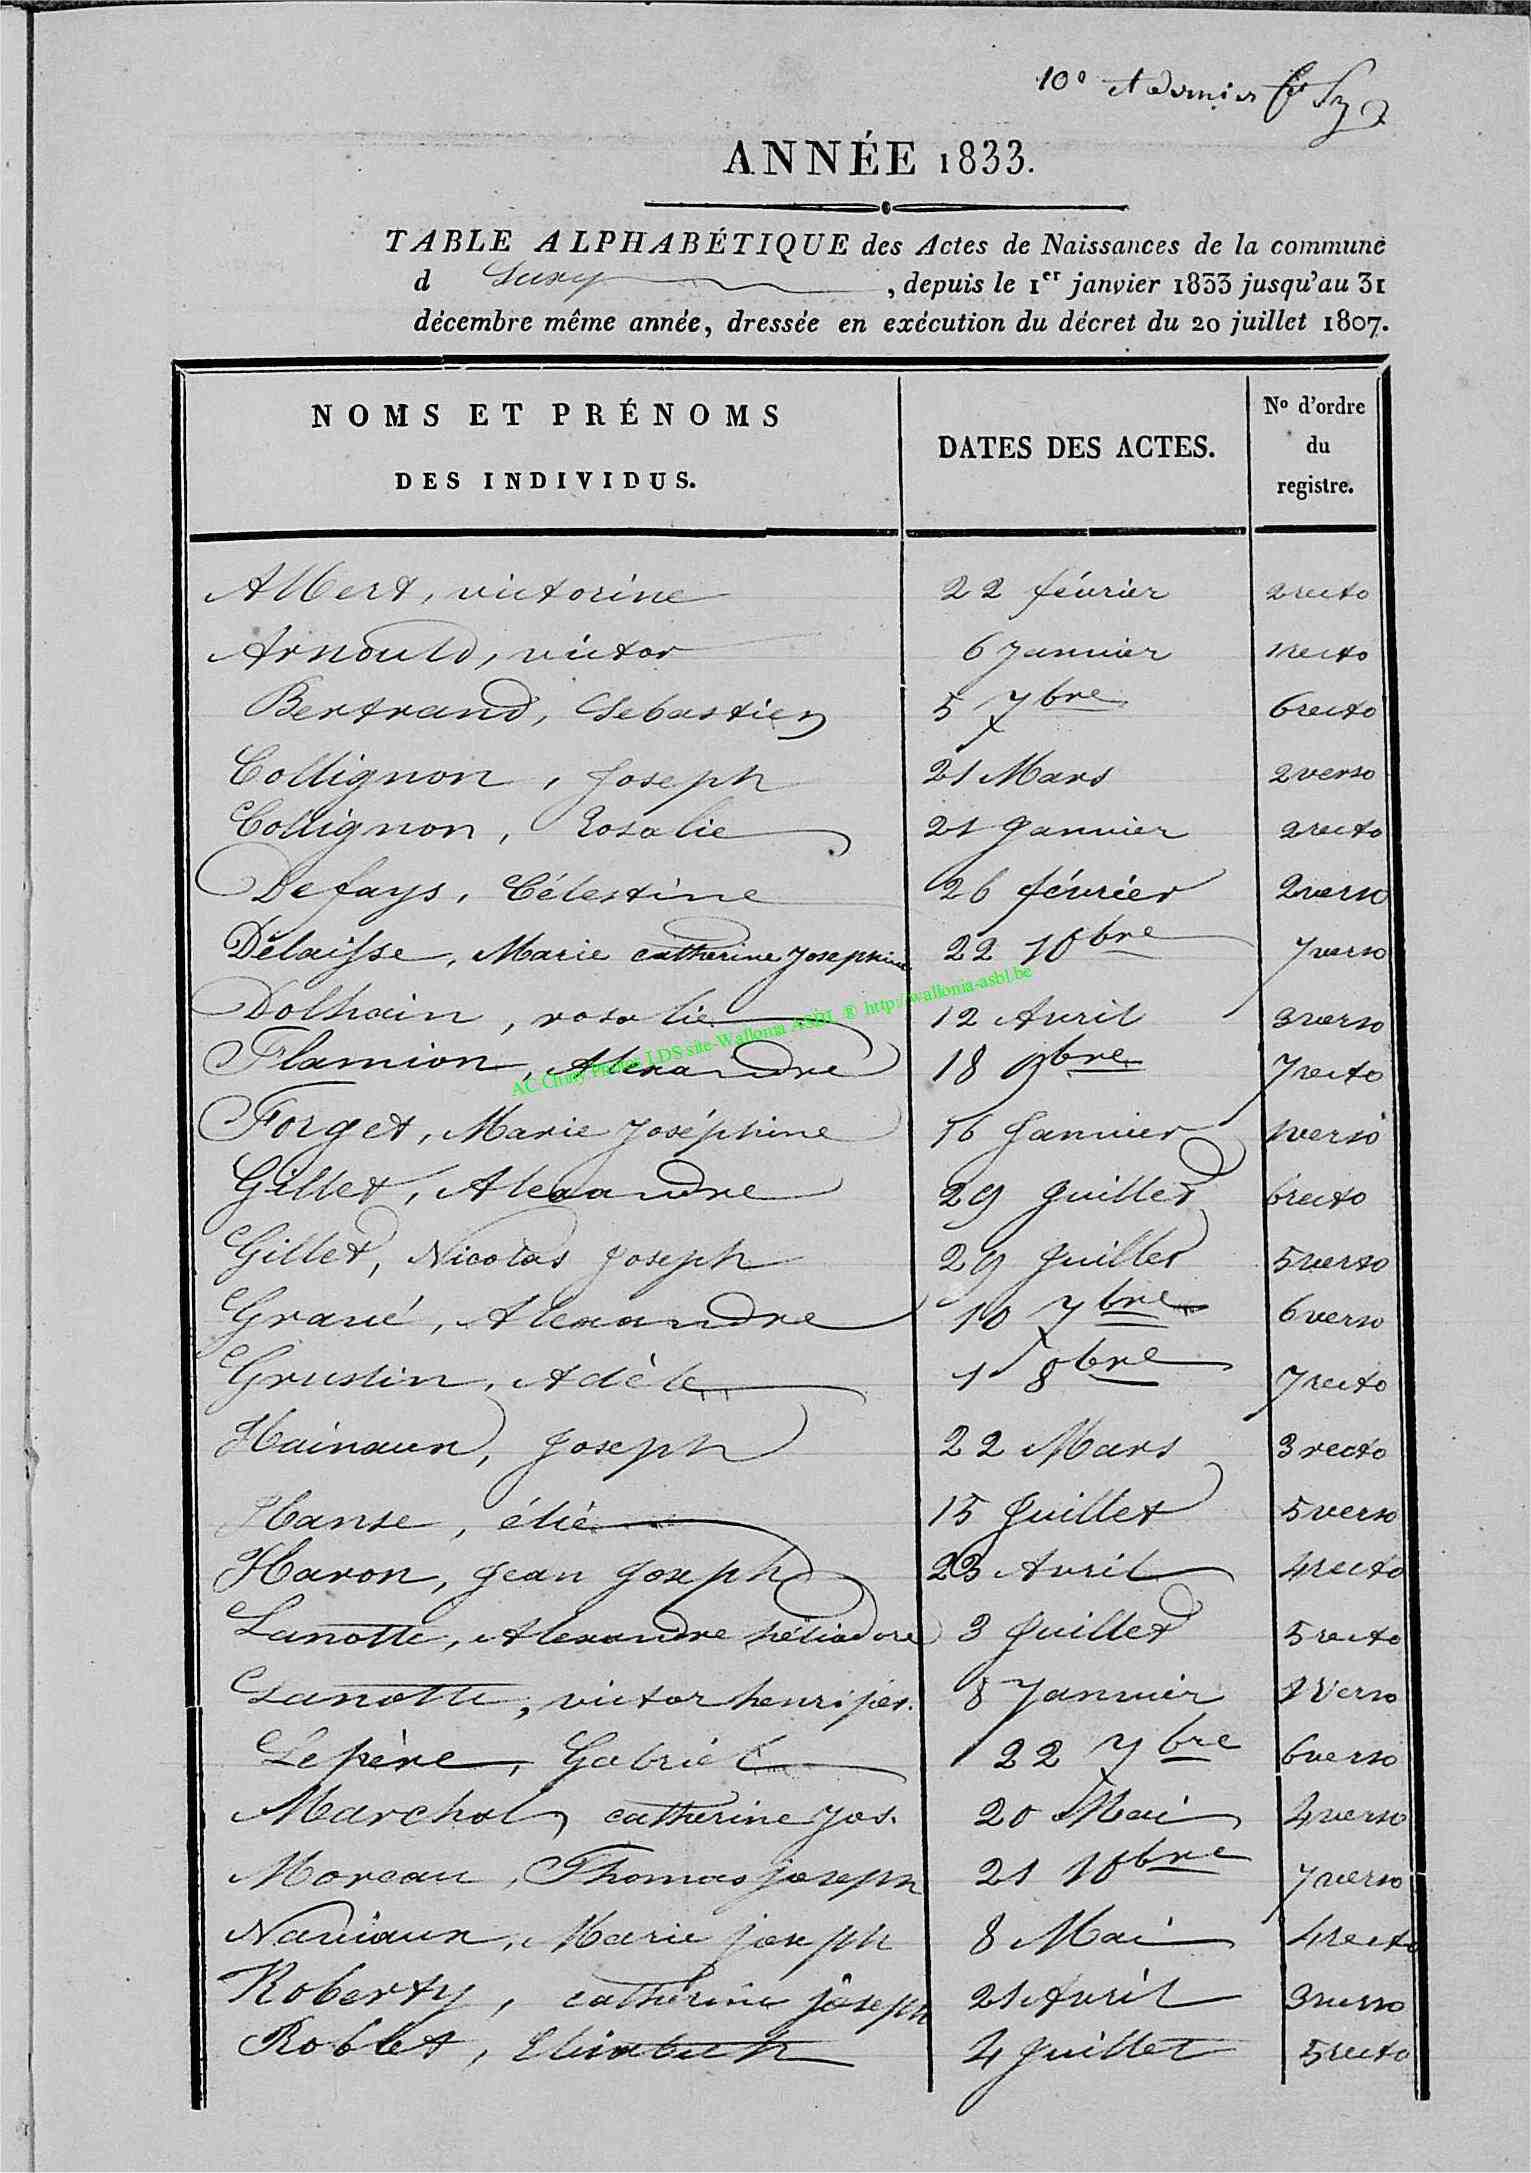 10e et dernier
ANNÉE 1833.
TABLE ALPHABÉTIQUE des Actes de Naissances de la commune
d Suxy, depuis le 1er janvier 1833 jusqu'au 31
décembre même année, dressée en exécution du décret du 20 juillet 1807.
NOMS ET PRÉNOMS DES INDIVIDUS. DATES DES ACTES. No d'ordre du registre.
Albert, victorine 22 février 2 recto
Arnould, victor 6 Janvier 1 recto
Bertrand, Sebastien 5 7bre 6 recto
Collignon, Joseph 21 Mars 2 verso
Collignon, Rosalie 21 Janvier 2 recto
Defays, Célestine 26 février 2 verso
Delaisse, Marie catherine Josephine 22 10bre 7 verso
Dolhain, rosalie 12 Avril 3 verso
Flamion, Alexandre 18 9bre 7 recto
AC Chiny Photos LDS site-Wallonia ASBL ® http://wallonia-asbl.be
Forget, Marie Joséphine 16 Janvier 1 verso
Gillet, Alexandre 29 Juillet 6 recto
Gillet, Nicolas Joseph 29 Juillet 5 verso
Gravé, Alexandre 10 7bre 6 verso
Grustin, Adèle 1 8bre 7 recto
Hainaux, Joseph 22 Mars 3 recto
Hanse, élié 15 Juillet 5 verso
Havon, Jean Joseph 23 Avril 4 recto
Lanotte, Alexandre héliodore 3 Juillet 5 recto
Lanotte, victor henri jos. 8 Janvier 1 Verso
Lepère, Gabriel 22 7bre 6 verso
Marchal, catherine Jos. 20 Mai 4 verso
Moreau, Thomas joseph 21 10bre 7 verso
Naviaux, Marie joseph 8 Mai 4 recto
Roberty, catherine joseph 21 Avril 3 verso
Roblet, Elisabeth 4 Juillet 5 recto